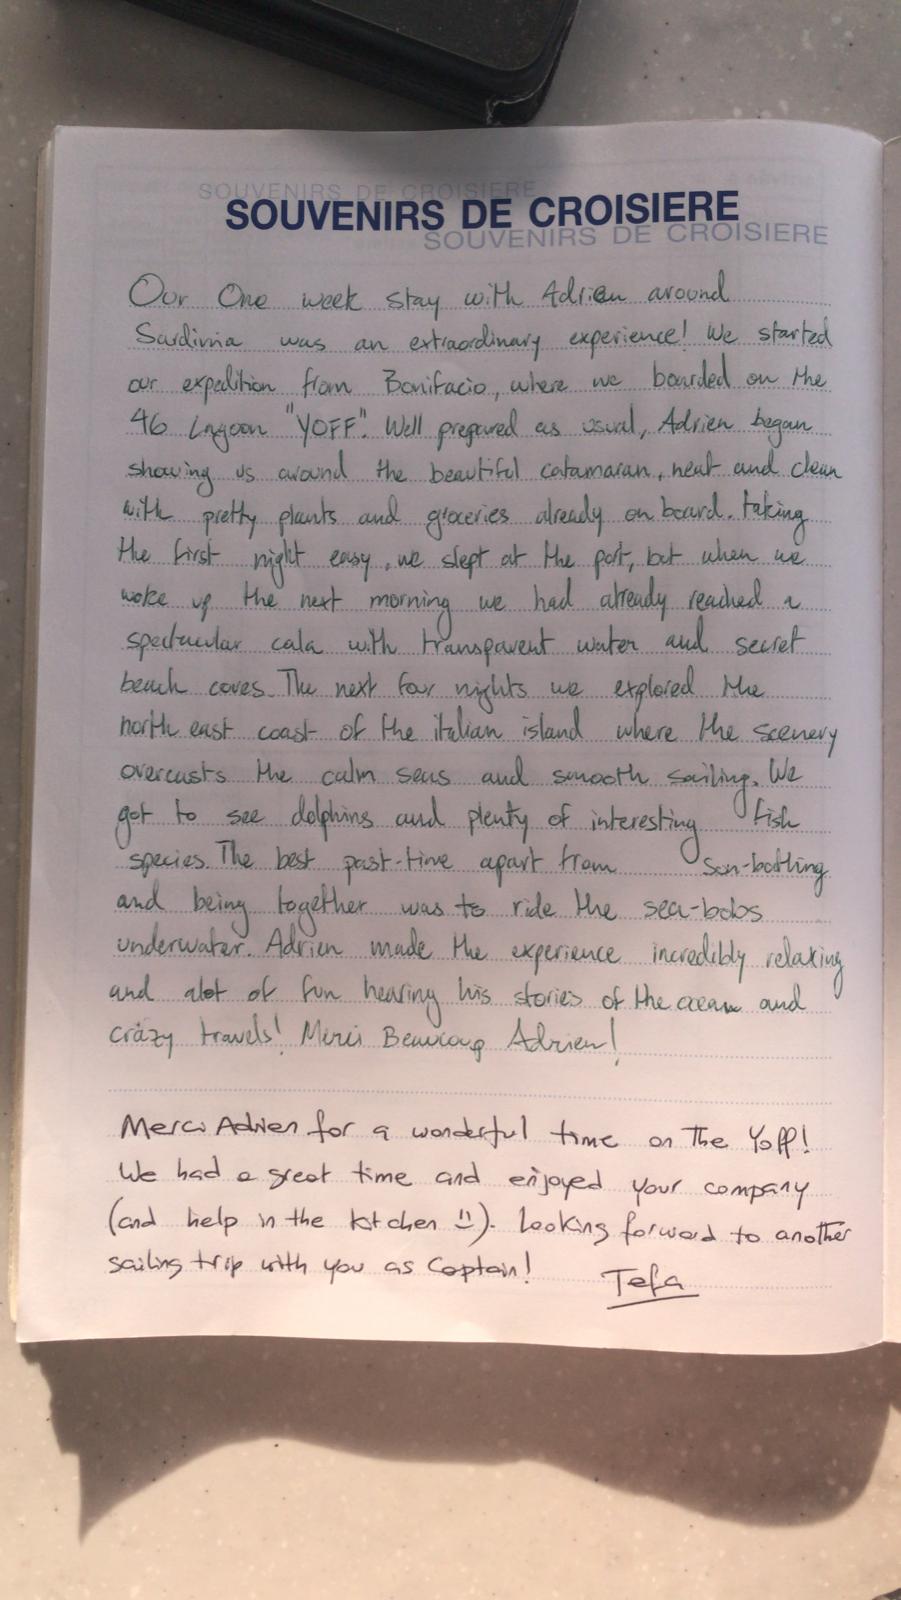 SOUVENIRS DE CROISIERE
SOUVENIRS DE CROISIERE
SOUVENIRS DE CROISIERE
Our One week stay with Adrien around
Sardinia was an extraordinary experience! We started
our expedition from Bonifacio, where we boarded on the
46 Lagoon "YOFF". Well prepared as usual, Adrien began
showing us around the beautiful catamaran, neat and clean
with pretty plants and groceries already on board. taking
the first night easy, we slept at the port, but when we
woke up the next morning we had already reached a
spectacular cala with transparent water and secret
beach coves. The next four nights we explored the
north east coast of the italian island where the scenery
overcasts the calm seas and smooth sailing. We
got to see dolphins and plenty of interesting fish
species. The best past-time apart from sun-bathing
and being together was to ride the sea-bobs
underwater. Adrien made the experience incredibly relaxing
and alot of fun hearing his stories of the ocean and
crazy travels! Merci Beaucoup Adrien!
Merci Adrien for a wonderful time on the Yoff!
We had a great time and enjoyed your company
(and help in the kitchen :)). Looking forward to another
sailing trip with you as Captain!
Tefa